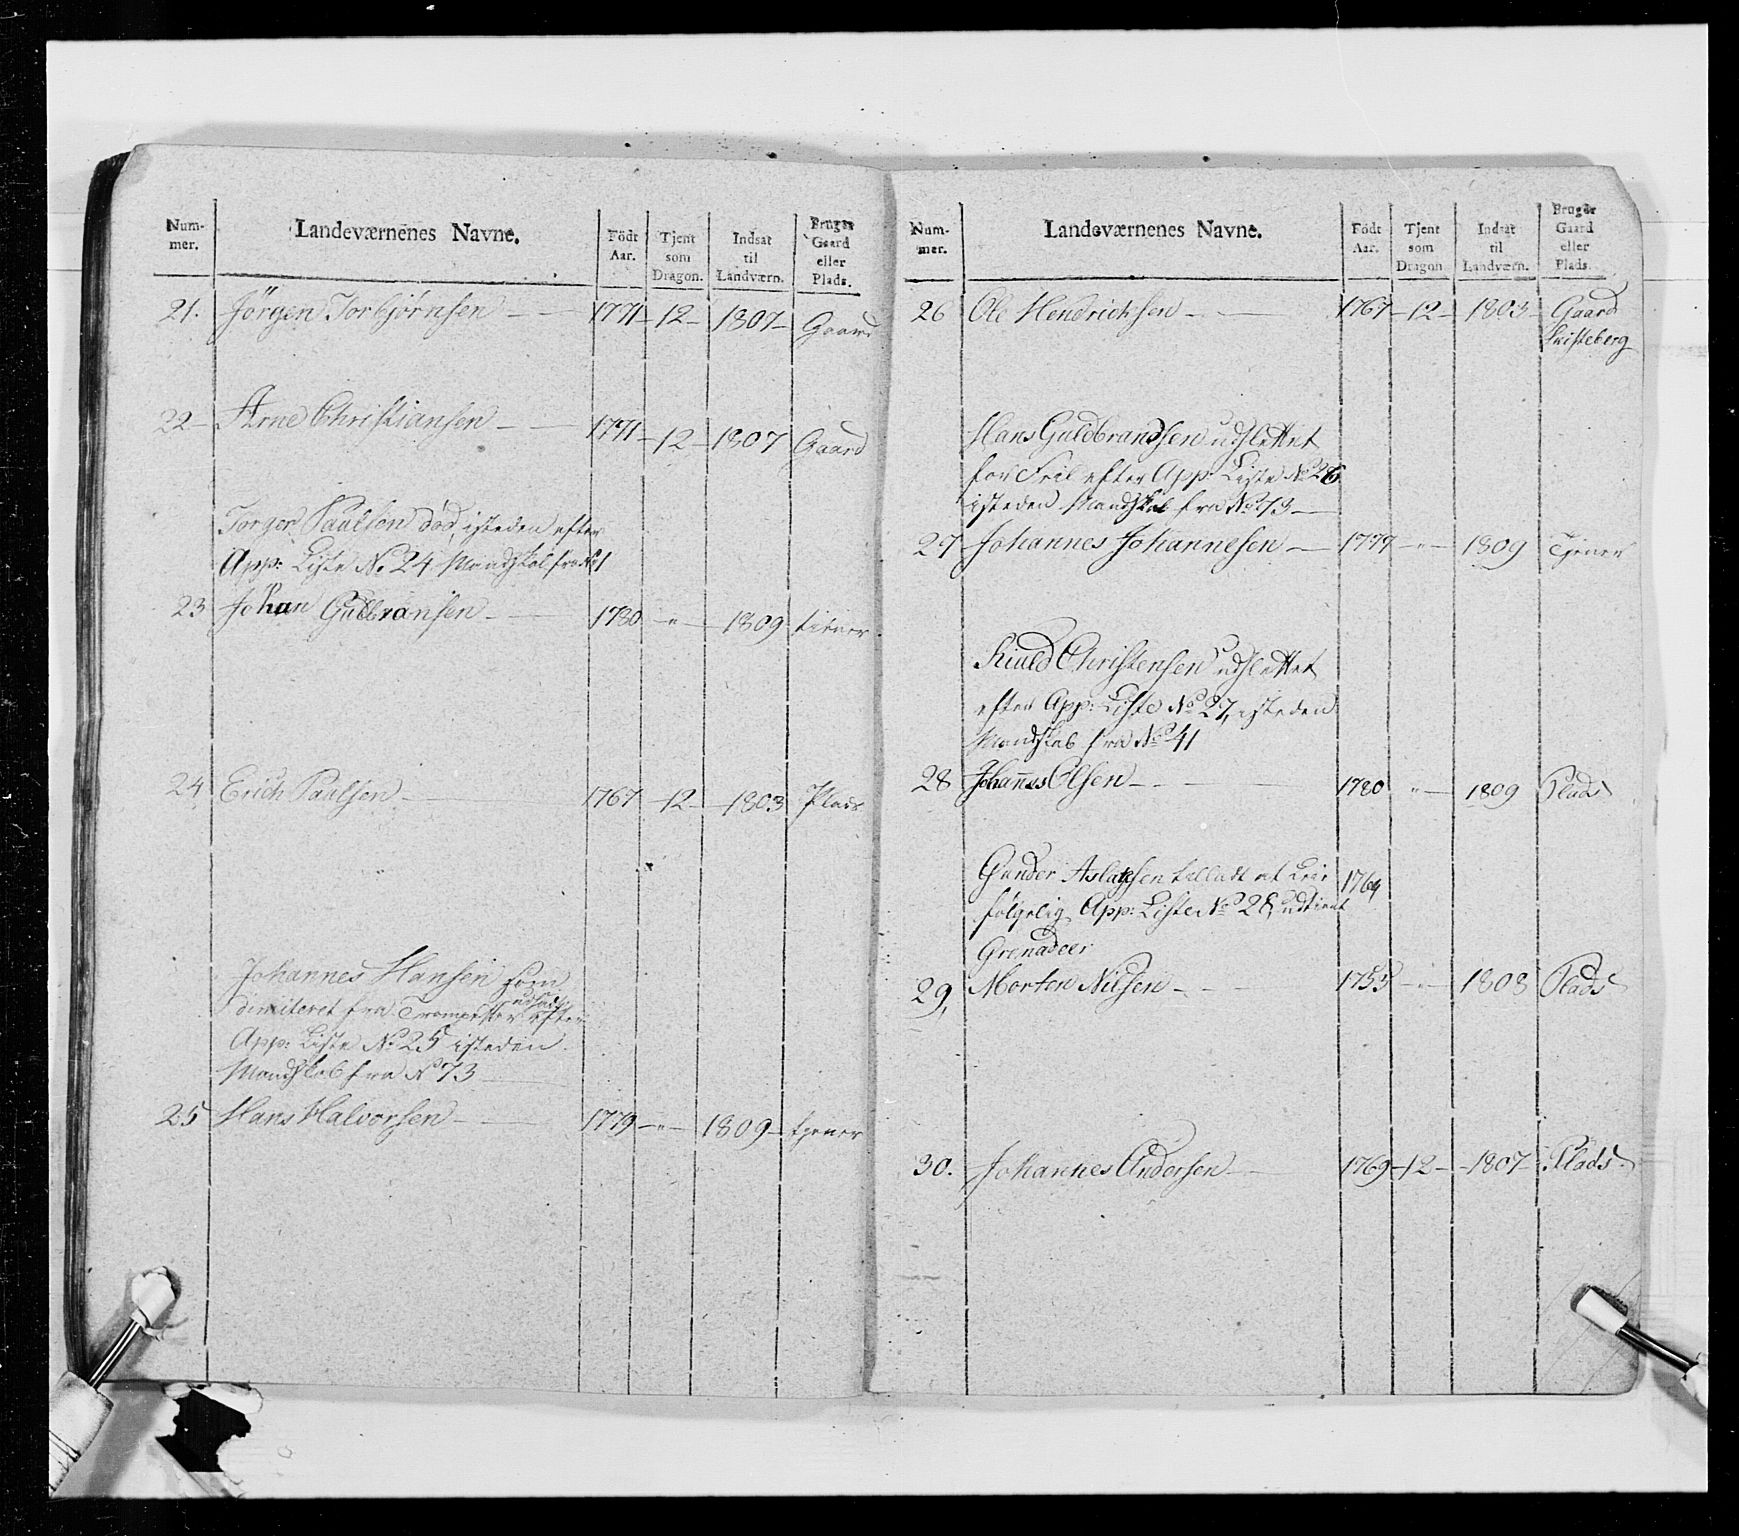 Num-
mer.
Landeværnenes Navne.
Födt
Aar.
Tjent
som
Dragon.
Indsat
til
Landværn.
Bruger
Gaard
eller
Plads.
21. Jörgen Torbjörnsen 1771 12 1807 Gaard
22 Arne Christiansen 1771 12 1807 Gaard
Torger Paulsen död, isteden efter
App: Liste No. 24 Mandskab fra No 1
23 Johan Gulbransen 1780 " 1809 tiener
24 Erich Paulsen 1767 12 1803 Plads
Johannes Hansen som
dimiteret fra Trompetter udsat efter
App: Liste No 25 isteden
Mandskab fra No 73
25 Hans Halvorsen 1779 " 1809 tjener
Num-
mer.
Landeværnenes Navne.
Födt
Aar.
Tjent
som
Dragon.
Indsat
til
Landværn.
Bruger
Gaard
eller
Plads.
26 Ole Hendrichsen 1767 12 1803 Gaard
Hans Guldbrandsen udslettet
for Feil efter App: Liste No 26
isteden Mandskab fra No 73
27 Johannes Johannesen 1777 " 1809 Tjener
Christensen udslettet
efter App: Liste No 27, isteden
Mandskab fra No 41
28 Johannes Olsen 1780 " 1809 Plads
Gunder Aslagsen 1764
fölgelig App: Liste No 28, udtient
Grenadeer
29, Morten Nilsen 1755 " 1808 Plads
30. Johannes Andersen 1769 12 1807 Plads